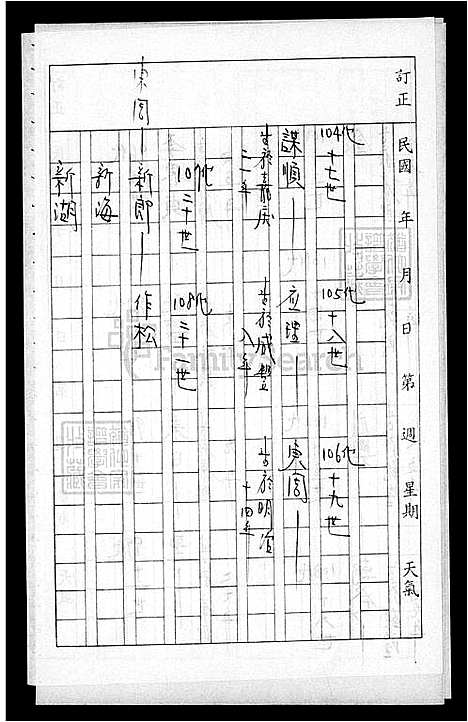 訂正
民國 年 月 日 第 週 星期 天氣
104代 十七世
105代 十八世
106代 十九世
謀順——
应理——
東宮——
生於嘉庆二一年
生於咸豐八年
生於明治十四年
107代 二十世
108代 二十一世
東宮——新郎——作松
新海
新湖
FamilySearch